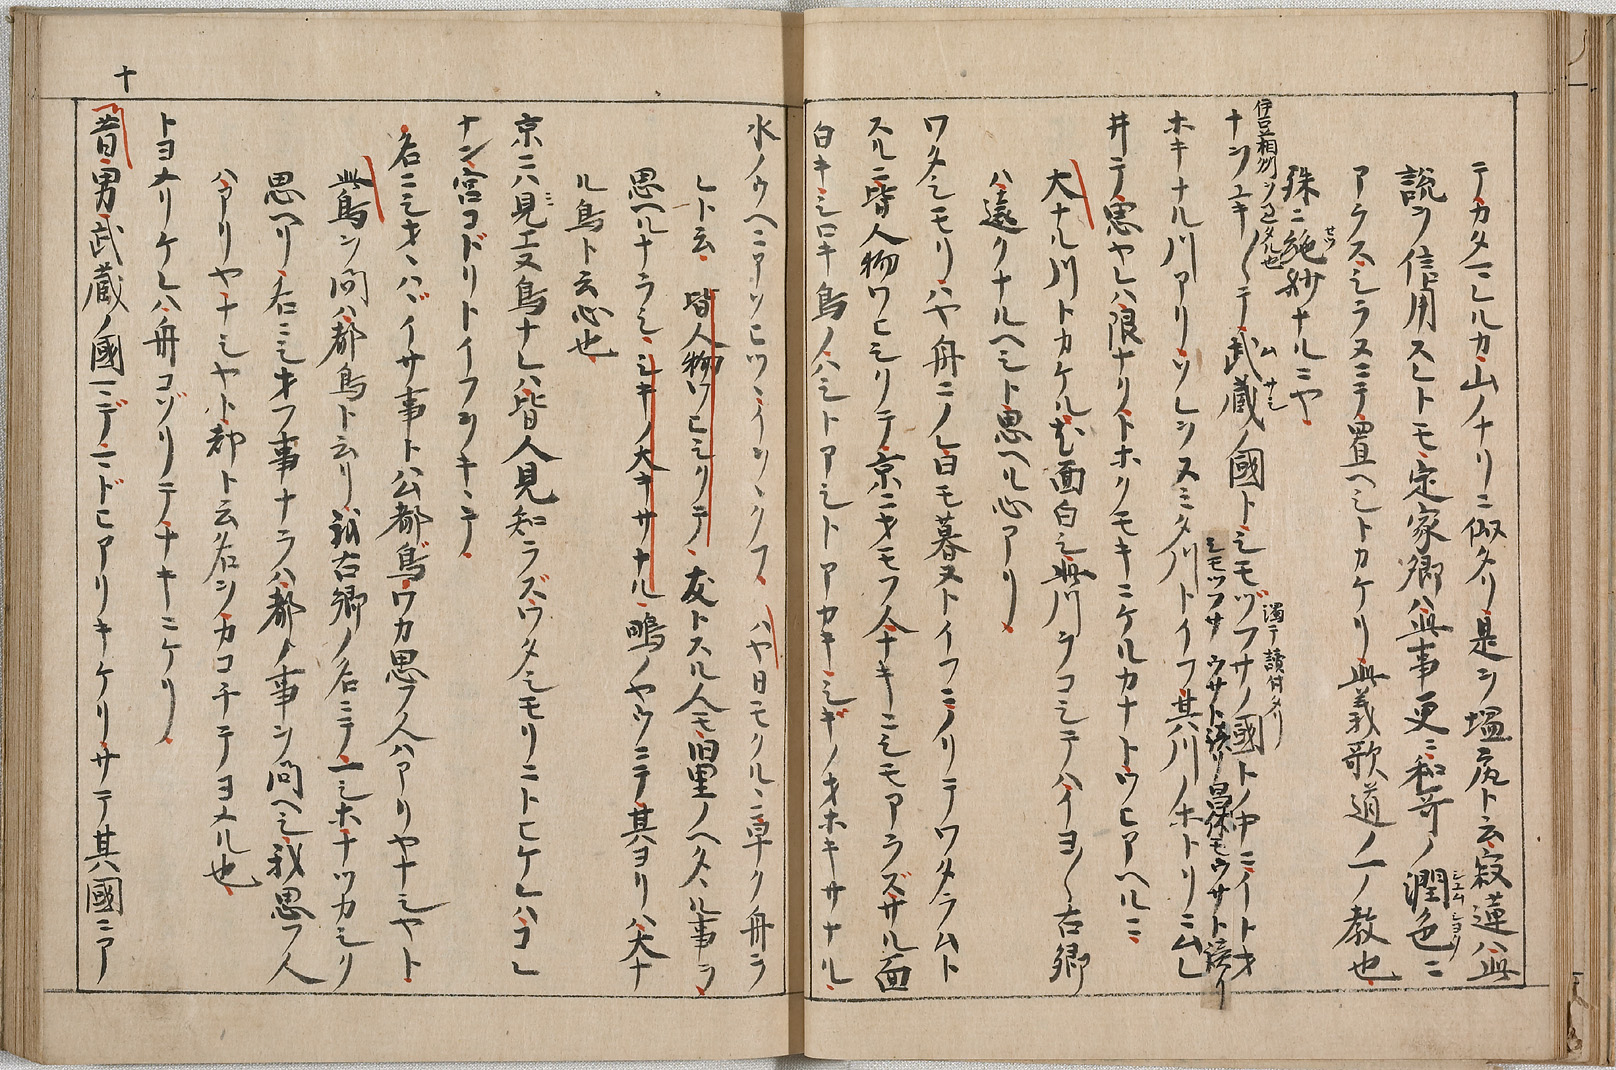 テカタマシルカ山ノナリニ似タリ是ヲ塩尻ト云寂蓮ハ此
説ヲ信用スレトモ定家卿ハ此事更ニ和哥ノ潤色ニ
シユム シヨク
アラスシラヌニテ置ヘシトカケリ此義歌道ノ一ノ教也
殊ニ絶妙ナルニヤ
セツ
伊豆相州ヲ过タル也
ナンユキ〳〵テ武蔵ノ國トシモツフサノ國トノ中ニイトオ
ム サシ
濁テ讀付タリ
シモツフサ ウサト讀リ昌休モウサト讀リ
ホキナル川アリソレヲスミタ川トイフ其川ノホトリニムレ
井テ思ヤレハ限ナリトホクモキニケルカナトワヒアヘルニ
大ナル川トカケル尤面白シ此川ヲコシテハイヨ〳〵古郷
ハ遠クナルヘシト思ヘル心アリ
ワタシモリハヤ舟ニノレ日モ暮ヌトイフニノリテワタラムト
スルニ皆人物ワヒシリテ京ニオモフ人ナキニシモアラズサル面
白キシロキ鳥ノハシトアシトアカキシギノオホキサナル
水ノウヘニアソヒツヽイヲヲクフ ハヤ日モクルヽニ早ク舟ラ
レト云 皆人物ワヒシリテ 友トスル人モ旧里ノヘタヽル事ラ
思ヘルナラシ シキノ大キサナル 鴫ノヤウニテ其ヨリハ大ナ
ル鳥ト云心也
京ニハ見エヌ鳥ナレハ皆人見知ラズワタシモリニトヒケレハコレ
ミ
ナン宮コドリトイフヲキヽテ
名ニシオハヾイサ事トハ公都鳥ワカ思フ人ハアリヤナシヤト
此鳥ヲ問ハ都鳥ト云リ 我古郷ノ名ニテ一シホナツカシリ
思ヘリ名ニシオフ事ナラハ都ノ事ヲ問ヘシ我思フ人
ハアリヤナシヤト都ト云名ヲカコチテヨメル也
トヨメリケレハ舟コゾリテナキニケリ
十
昔男武蔵ノ國マデマドヒアリキケリサテ其國ニア